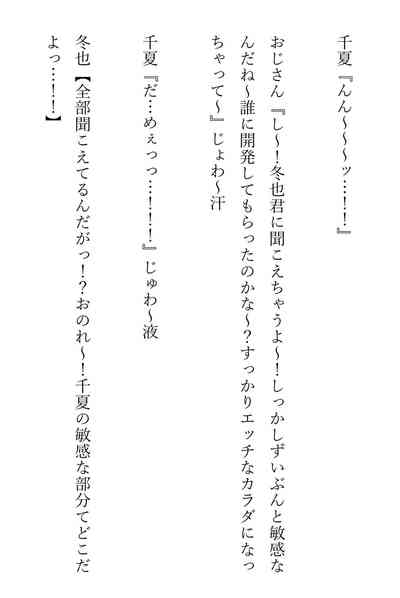 千夏『んん～～～ッ…！！』
おじさん『し～！冬也君に聞こえちゃうよ～！しっかしずいぶんと敏感な
んだね～誰に開発してもらったのかな～？すっかりエッチなカラダになっ
ちゃって～』じょわ～汗
千夏『だ…めぇっっ…！！！』じゅわ～液
冬也【全部聞こえてるんだがっ！？おのれ～！千夏の敏感な部分てどこだ
よっ…！！】